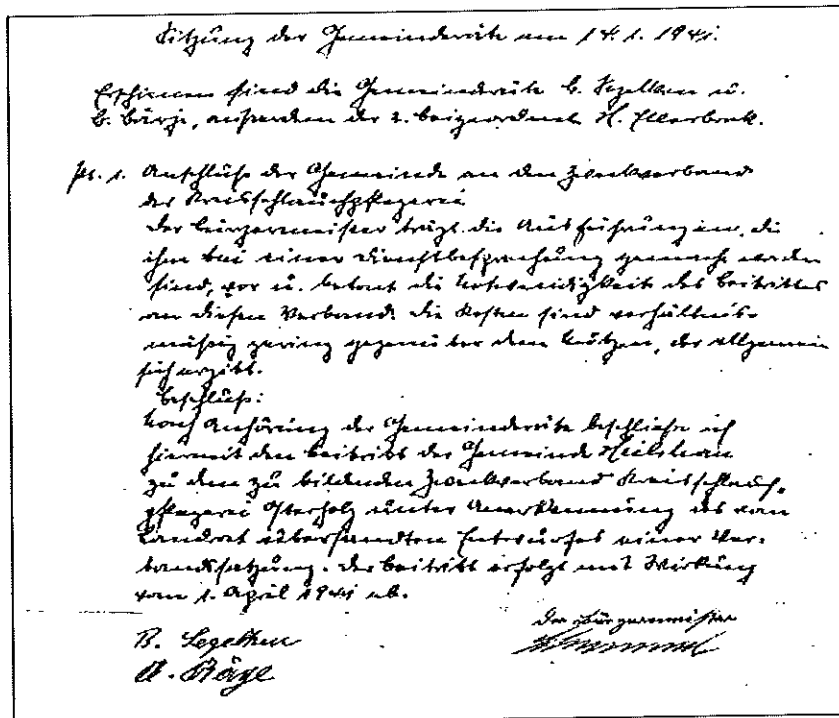 Sitzung der Gemeinderäte am 14.1.1941.
Erschienen sind die Gemeinderäte B. Segelken u.
B. außerdem der 2. Beigeordnete H. Ellerbrok.
Pt. 1. Anschluß der Gemeinde an den Zweckverband
der Kreisschlauchpflegerei
Der Bürgermeister trägt die Ausführungen, die
ihm bei einer Dienstbesprechung gemacht worden
sind, vor u. betont die Notwendigkeit des Beitrittes
an diesen Verband. Die Kosten sind verhältnis-
mäßig gering gegenüber dem Nutzen, der allgemein
sich ergibt.
Beschluß:
Nach Anhörung der Gemeinderäte beschließe ich
hiermit den Beitritt der Gemeinde
zu dem zu bildenden Zweckverband Kreisschlauch-
pflegerei Osterholz unter Anerkennung des vom
Landrat übersandten Entwurfes einer Ver-
bandssatzung. Der Beitritt erfolgt mit Wirkung
vom 1. April 1941 ab.
Der Bürgermeister
B. Segelken